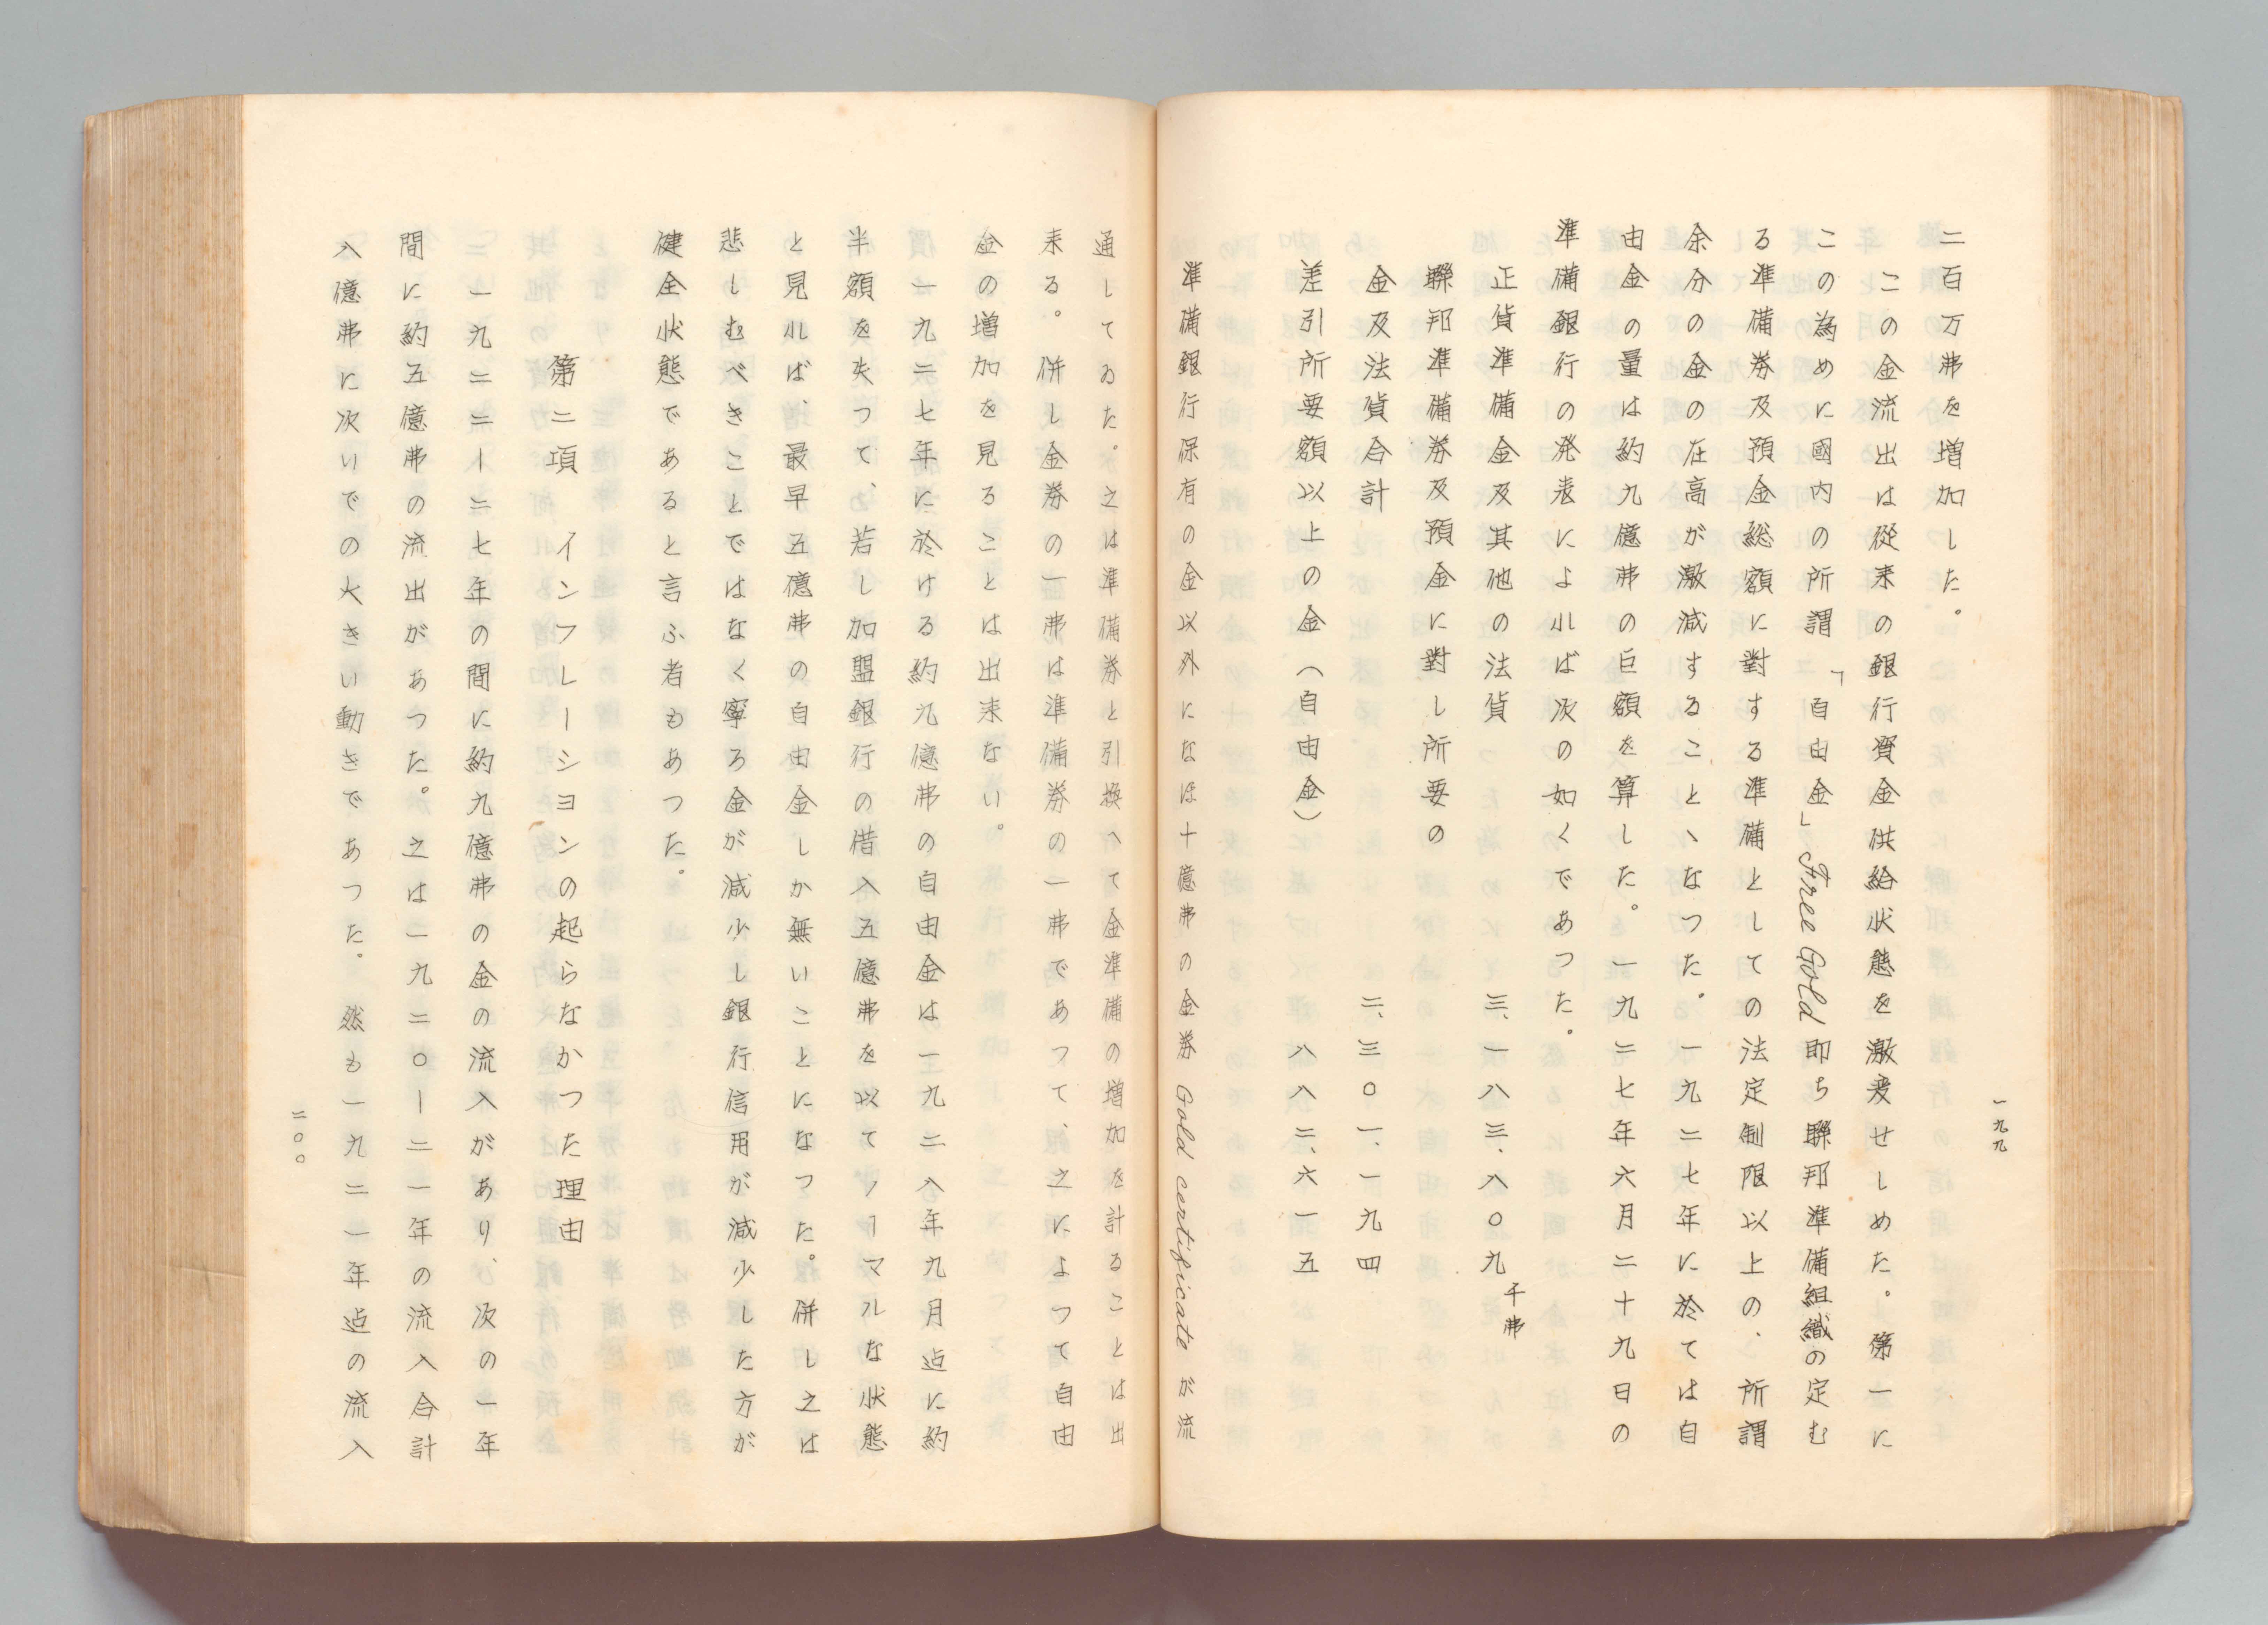 一九九
二百万弗を増加した。
この金流出は從来の銀行資金供給状態を激変せしめた。第一に
この為めに國内の所謂「自由金」Free Gold 即ち聯邦準備組織の定む
る準備券及預金総額に對する準備としての法定制限以上の、所謂
余分の金の在高が激減することゝなつた。一九二七年に於ては自
由金の量は約九億弗の巨額を算した。一九二七年六月二十九日の
準備銀行の発表によれば次の如くであつた。
千弗
正貨準備金及其他の法貨 三、一八三、八〇九
聯邦準備券及預金に對し所要の
金及法貨合計 二、三〇一、一九四
差引所要額以上の金（自由金） 八八二、六一五
準備銀行保有の金以外になほ十億弗の金券 Gold certificate が流
通してゐた。之は準備券と引換へて金準備の増加を計ることは出
来る。併し金券の一弗は準備券の一弗であつて、之によつて自由
金の増加を見ることは出来ない。
一九二七年に於ける約九億弗の自由金は一九二八年九月迠に約
半額を失つて、若し加盟銀行の借入五億弗を以てノーマルな状態
と見れば、最早五億弗の自由金しか無いことになつた。併し之は
悲しむべきことではなく寧ろ金が減少し銀行信用が減少した方が
健全状態であると言ふ者もあつた。
第二項　インフレーシヨンの起らなかつた理由
一九二二ー二七年の間に約九億弗の金の流入があり、次の一年
間に約五億弗の流出があつた。之は一九二〇ー二一年の流入合計
八億弗に次いでの大きい動きであつた。然も一九二一年迠の流入
二〇〇